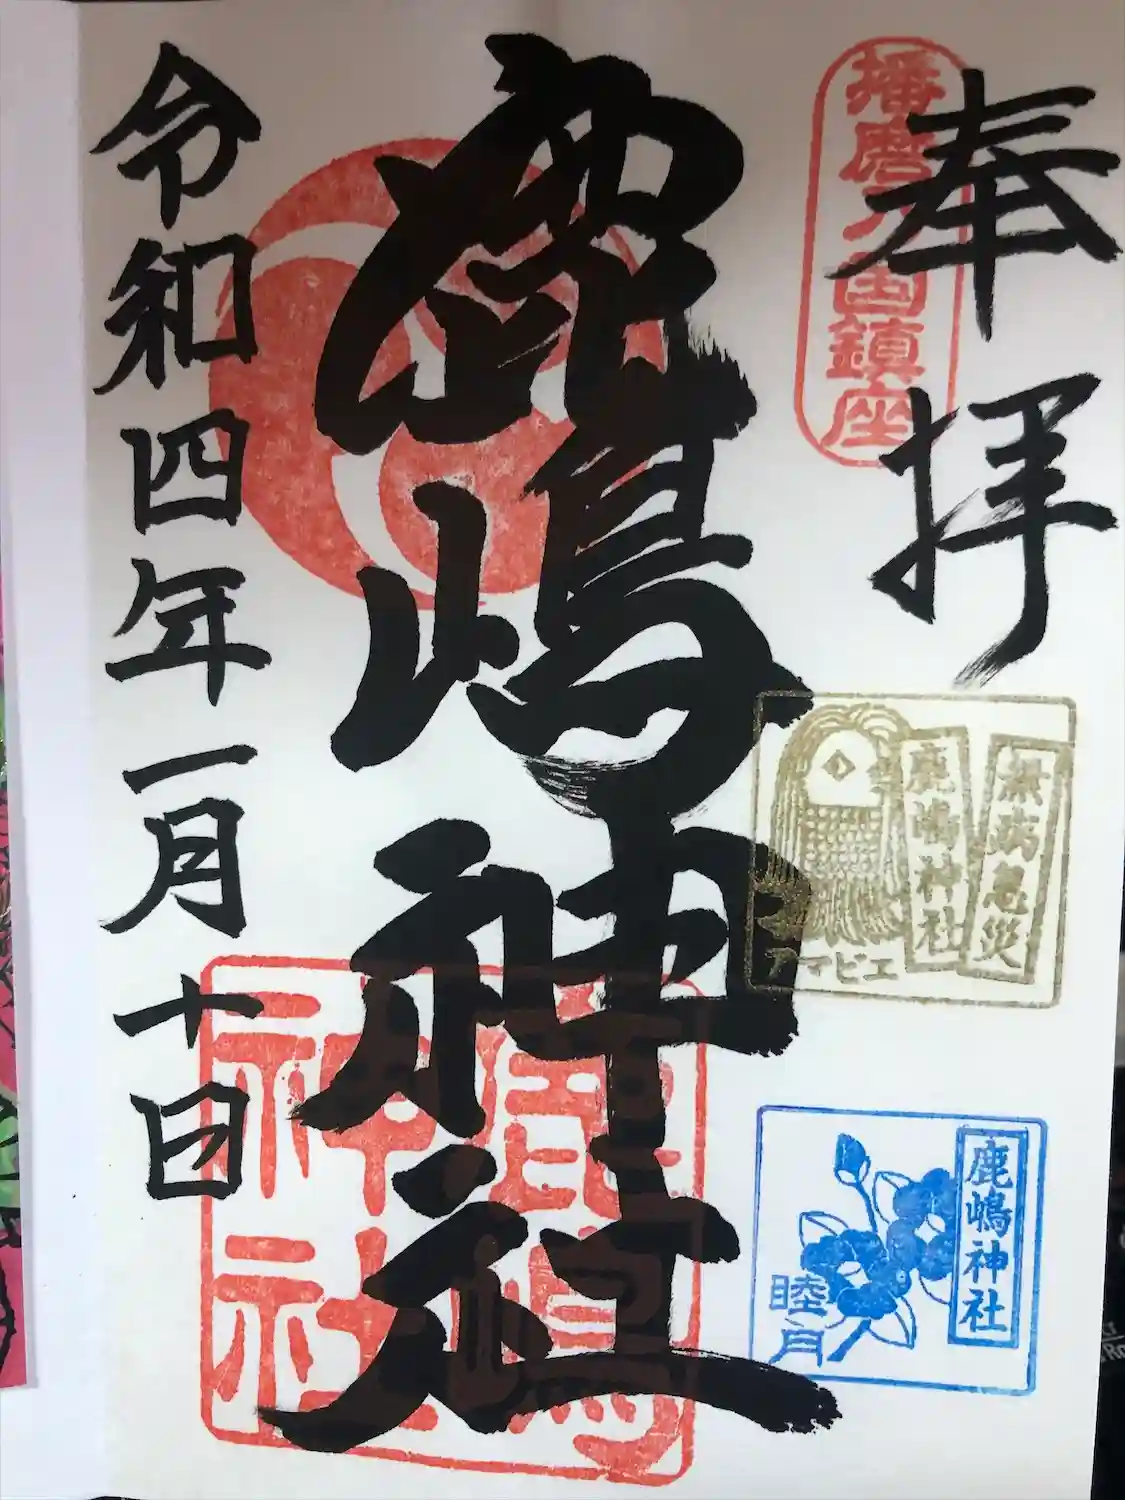 奉拝
播磨乃国鎮座
鹿嶋神社
鹿嶋神社
令和四年一月十日
無病息災
鹿嶋神社
アマビエ
鹿嶋神社
睦月